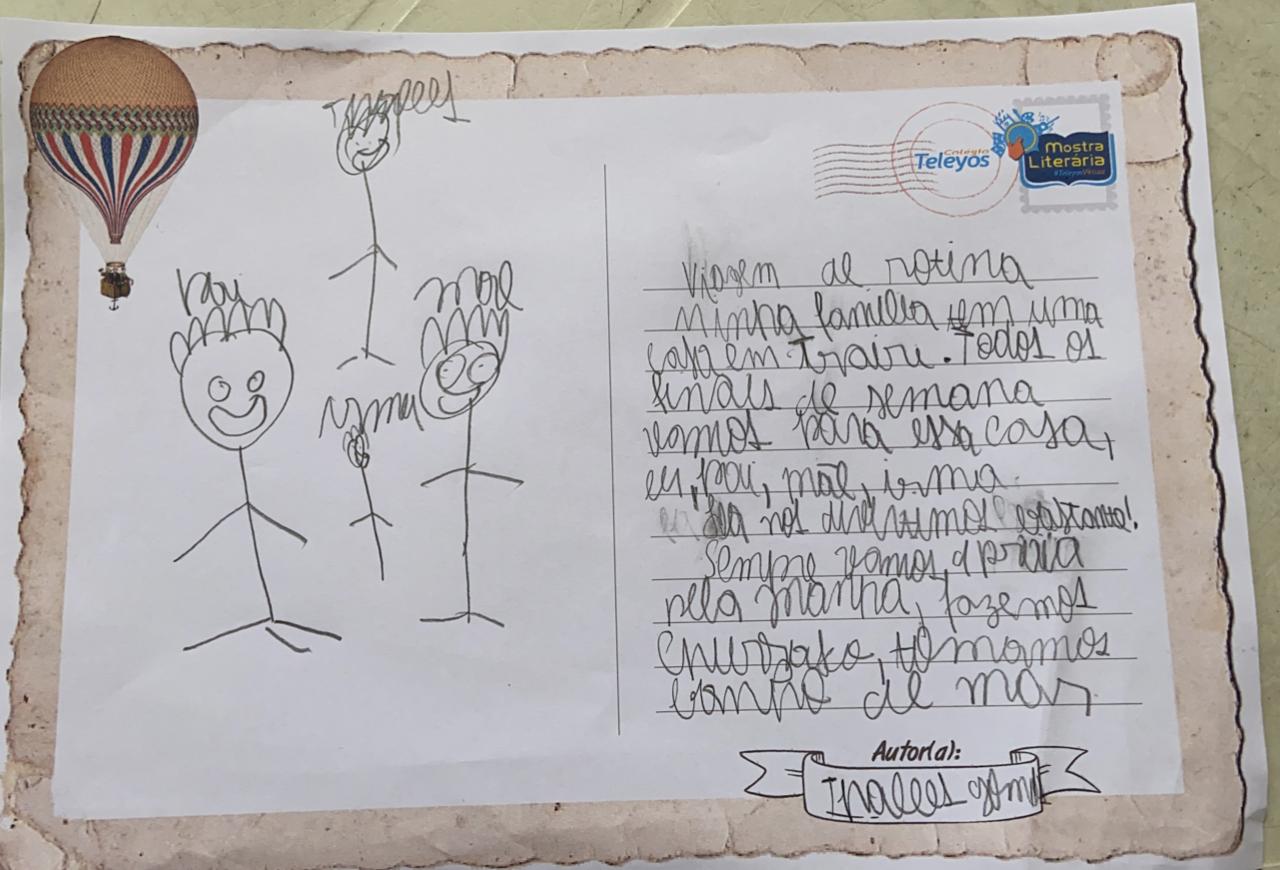 pai
mãe
irmã
Colégio
Teleyos
Mostra
Literária
Viagem de rotina
Minha família tem uma
casa em Trairi. Todos os
finais de semana
vamos para essa casa,
eu, pai, mãe, irmã.
nos divertimos bastante!
Sempre vamos a praia
pela manhã, fazemos
churrasco, tomamos
banho de mar,
Autor(a):